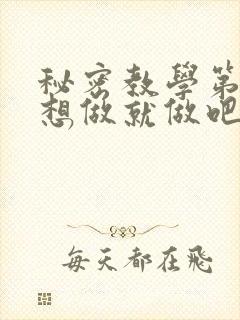 秘密教學第
想做就做吧
每天都在飛